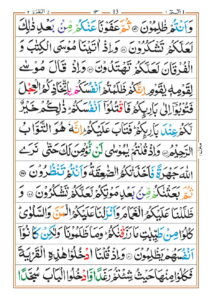 وَاَنْتُمْ ظٰلِمُوْنَ ۝ ثُمَّ عَفَوْنَا عَنْكُمْ مِّنْۢ بَعْدِ ذٰلِكَ
لَعَلَّكُمْ تَشْكُرُوْنَ ۝ وَاِذْ اٰتَيْنَا مُوْسَى الْكِتٰبَ وَ
الْفُرْقَانَ لَعَلَّكُمْ تَهْتَدُوْنَ ۝ وَاِذْ قَالَ مُوْسٰى
لِقَوْمِهٖ يٰقَوْمِ اِنَّكُمْ ظَلَمْتُمْ اَنْفُسَكُمْ بِاتِّخَاذِكُمُ الْعِجْلَ
فَتُوْبُوْٓا اِلٰى بَارِئِكُمْ فَاقْتُلُوْٓا اَنْفُسَكُمْ ذٰلِكُمْ خَيْرٌ
لَّكُمْ عِنْدَ بَارِئِكُمْ فَتَابَ عَلَيْكُمْ اِنَّهٗ هُوَ التَّوَّابُ
الرَّحِيْمُ ۝ وَاِذْ قُلْتُمْ يٰمُوْسٰى لَنْ نُّؤْمِنَ لَكَ حَتّٰى نَرَى
اللّٰهَ جَهْرَةً فَاَخَذَتْكُمُ الصّٰعِقَةُ وَاَنْتُمْ تَنْظُرُوْنَ ۝
ثُمَّ بَعَثْنٰكُمْ مِّنْۢ بَعْدِ مَوْتِكُمْ لَعَلَّكُمْ تَشْكُرُوْنَ ۝ وَ
ظَلَّلْنَا عَلَيْكُمُ الْغَمَامَ وَاَنْزَلْنَا عَلَيْكُمُ الْمَنَّ وَالسَّلْوٰى
كُلُوْا مِنْ طَيِّبٰتِ مَا رَزَقْنٰكُمْ وَمَا ظَلَمُوْنَا وَلٰكِنْ كَانُوْٓا
اَنْفُسَهُمْ يَظْلِمُوْنَ ۝ وَاِذْ قُلْنَا ادْخُلُوْا هٰذِهِ الْقَرْيَةَ
فَكُلُوْا مِنْهَا حَيْثُ شِئْتُمْ رَغَدًا وَّادْخُلُوا الْبَابَ سُجَّدًا